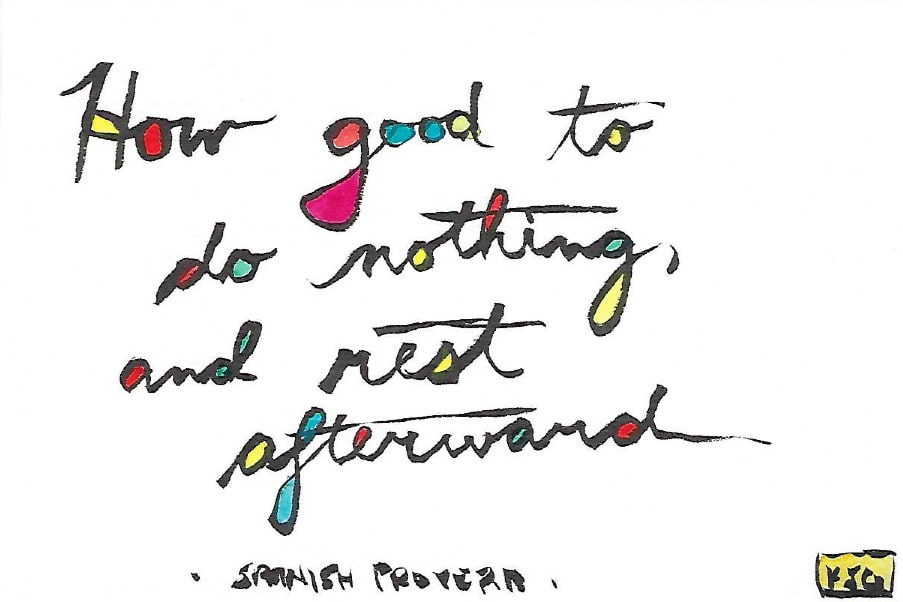 How good to
do nothing,
and rest
afterward
. SPANISH PROVERB .